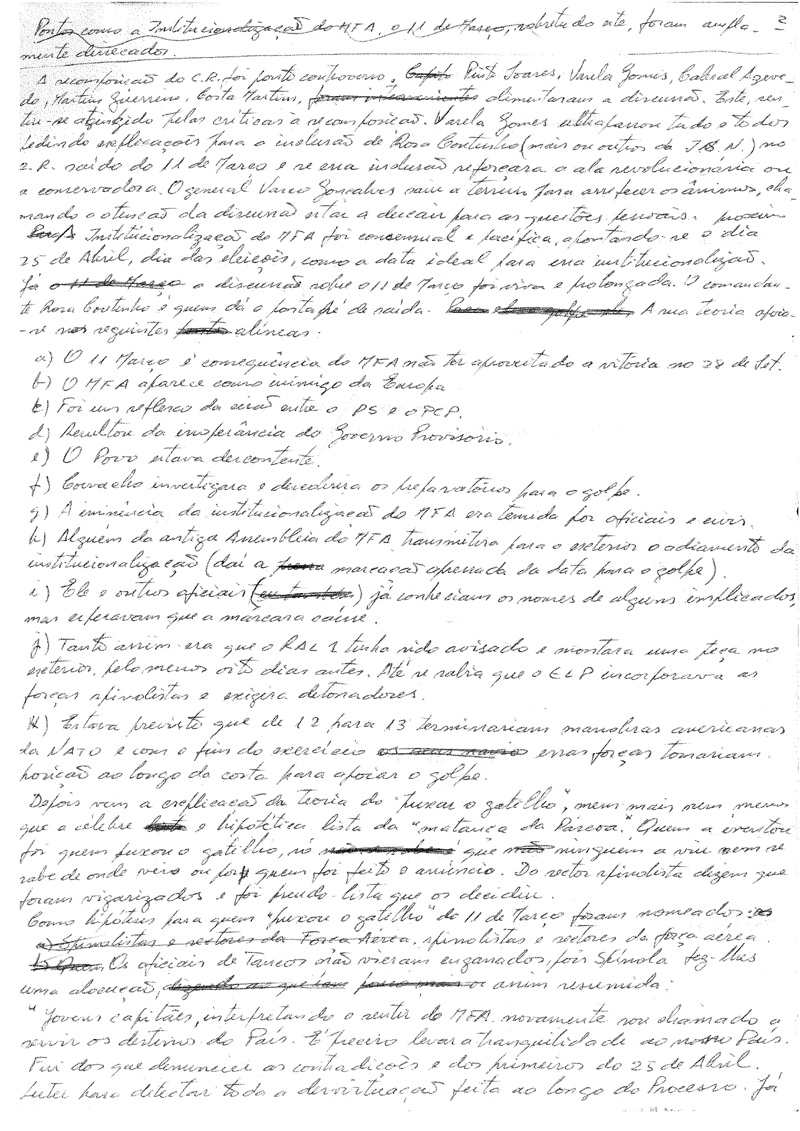 Pontos como a Institucionalização do MFA, o 11 de Março, sobretudo este, foram ampla- 2
mente dissecados.
A recomposição do C.R. foi ponto controverso. Pinto Soares, Varela Gomes, Cabral Azeve-
do, Martins Guerreiro, Costa Martins, foram intervenientes alimentaram a discussão. Este, sen-
tiu-se atingido pelas críticas à recomposição. Varela Gomes ultrapassou tudo e todos
pedindo explicações para a inclusão de Rosa Coutinho (mais ou outros da J.S.N.) no
C.R. saído do 11 de Março e se essa inclusão reforçara a ala revolucionária ou
a conservadora. O general Vasco Gonçalves saiu a terreiro para arrefecer os ânimos, cha-
mando a atenção da discussão estar a descair para as questões pessoais.
A Institucionalização do MFA foi consensual e pacífica, apontando-se o dia
25 de Abril, dia das eleições, como a data ideal para essa institucionalização.
Já o 11 de Março a discussão sobre o 11 de Março foi viva e prolongada. O comandan-
te Rosa Coutinho é quem dá o pontapé de saída. A sua teoria apoia-
-se nas seguintes alíneas:
a) O 11 Março é consequência do MFA não ter aproveitado a vitória no 28 de Set.
b) O MFA aparece como inimigo da Europa
c) Foi um reflexo da cisão entre o PS e o PCP.
d) Resultou da inoperância do Governo Provisório.
e) O Povo estava descontente.
f) Corvacho investigara e descobrira os preparatórios para o golpe.
g) A iminência da institucionalização do MFA era temida por oficiais e civis.
h) Alguém da antiga Assembleia do MFA transmitira para o exterior o adiamento da
institucionalização (daí a marcação apressada da data para o golpe).
i) Ele e outros oficiais (eu também) já conheciam os nomes de alguns implicados,
mas esperavam que a máscara caísse.
j) Tanto assim era que o RAL 1 tinha sido avisado e montara uma peça no
exterior, pelo menos oito dias antes. Até se sabia que o ELP incorporava as
forças spinolistas e exigira detonadores.
k) Estava previsto que de 12 para 13 terminariam manobras americanas
da NATO e com o fim do exercício essas forças tomariam
posição ao longo da costa para apoiar o golpe.
Depois vem a explicação da teoria do "puxar o gatilho", nem mais nem menos
que a célebre e hipotética lista da "matança da Páscoa". Quem a inventou
foi quem puxou o gatilho, só que não ninguém a viu nem se
sabe de onde veio ou por quem foi feito o anúncio. Do sector spinolista dizem que
foram vigarizados e foi pseudo-lista que os decidiu.
Como hipóteses para quem "puxou o gatilho" do 11 de Março foram nomeados:
a) Spinolistas e sectores da Força Aérea. spinolistas e sectores da força aérea
b) Quem Os oficiais de Tancos não vieram enganados, pois Spínola fez-lhes
uma alocução, assim resumida:
"Jovens capitães, interpretando o sentir do MFA novamente sou chamado a
servir os destinos do País. É preciso levar a tranquilidade ao nosso País.
Fui dos que denunciei as contradições e dos primeiros do 25 de Abril.
Lutei para detectar toda a desvirtuação feita ao longo do Processo. Já